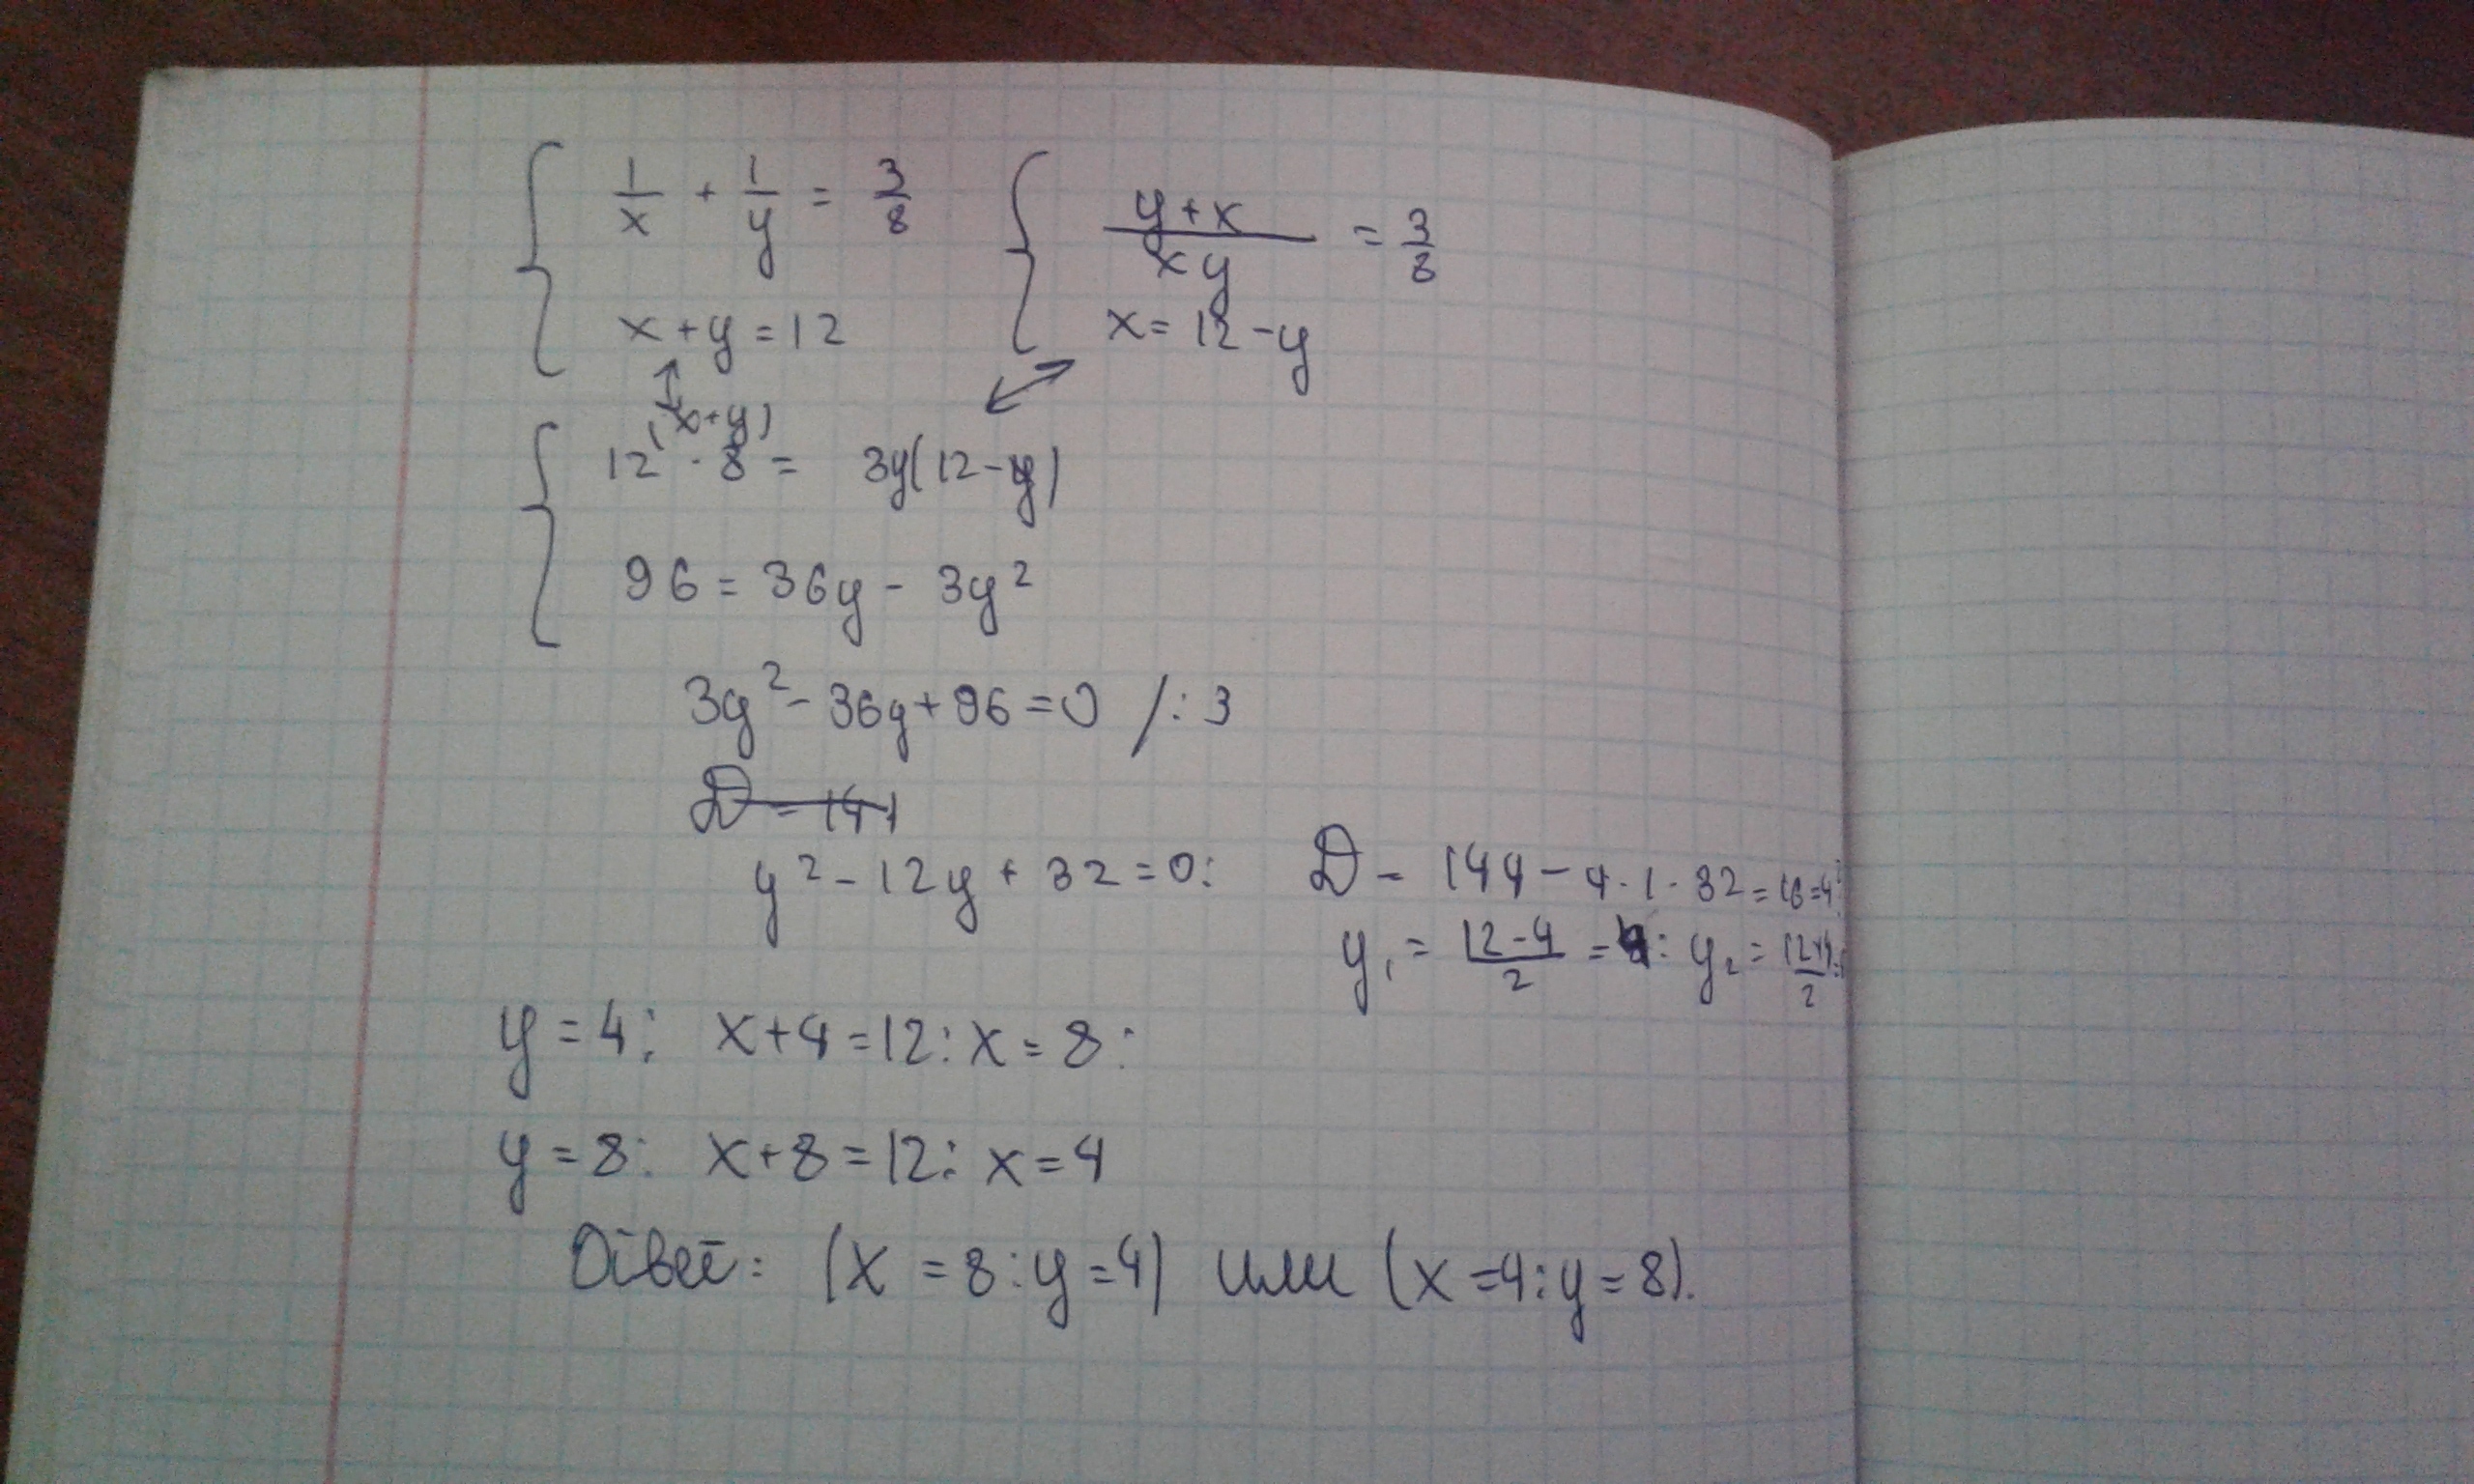 1/x + 1/y = 3/8
x+y=12
(y+x)/(xy) = 3/8
x=12-y
(x+y)
12 · 8 = 3y(12-y)
96=36y-3y²
3y²-36y+96=0 /:3
y²-12y+32=0: D - 144-4·1·32=16=4²
y₁ = (12-4)/2 = 4: y₂ = (12+4)/2
y=4: x+4=12: x=8:
y=8: x+8=12: x=4
Ответ: (x=8:y=4) или (x=4:y=8).